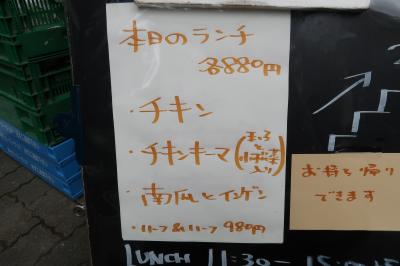 本日のランチ
各880円
・チキン
・チキンキーマ(玉子と小松菜入り)
・南瓜とインゲン
・ハーフ&ハーフ 980円
お持ち帰り
できます
LUNCH 11:30-15: